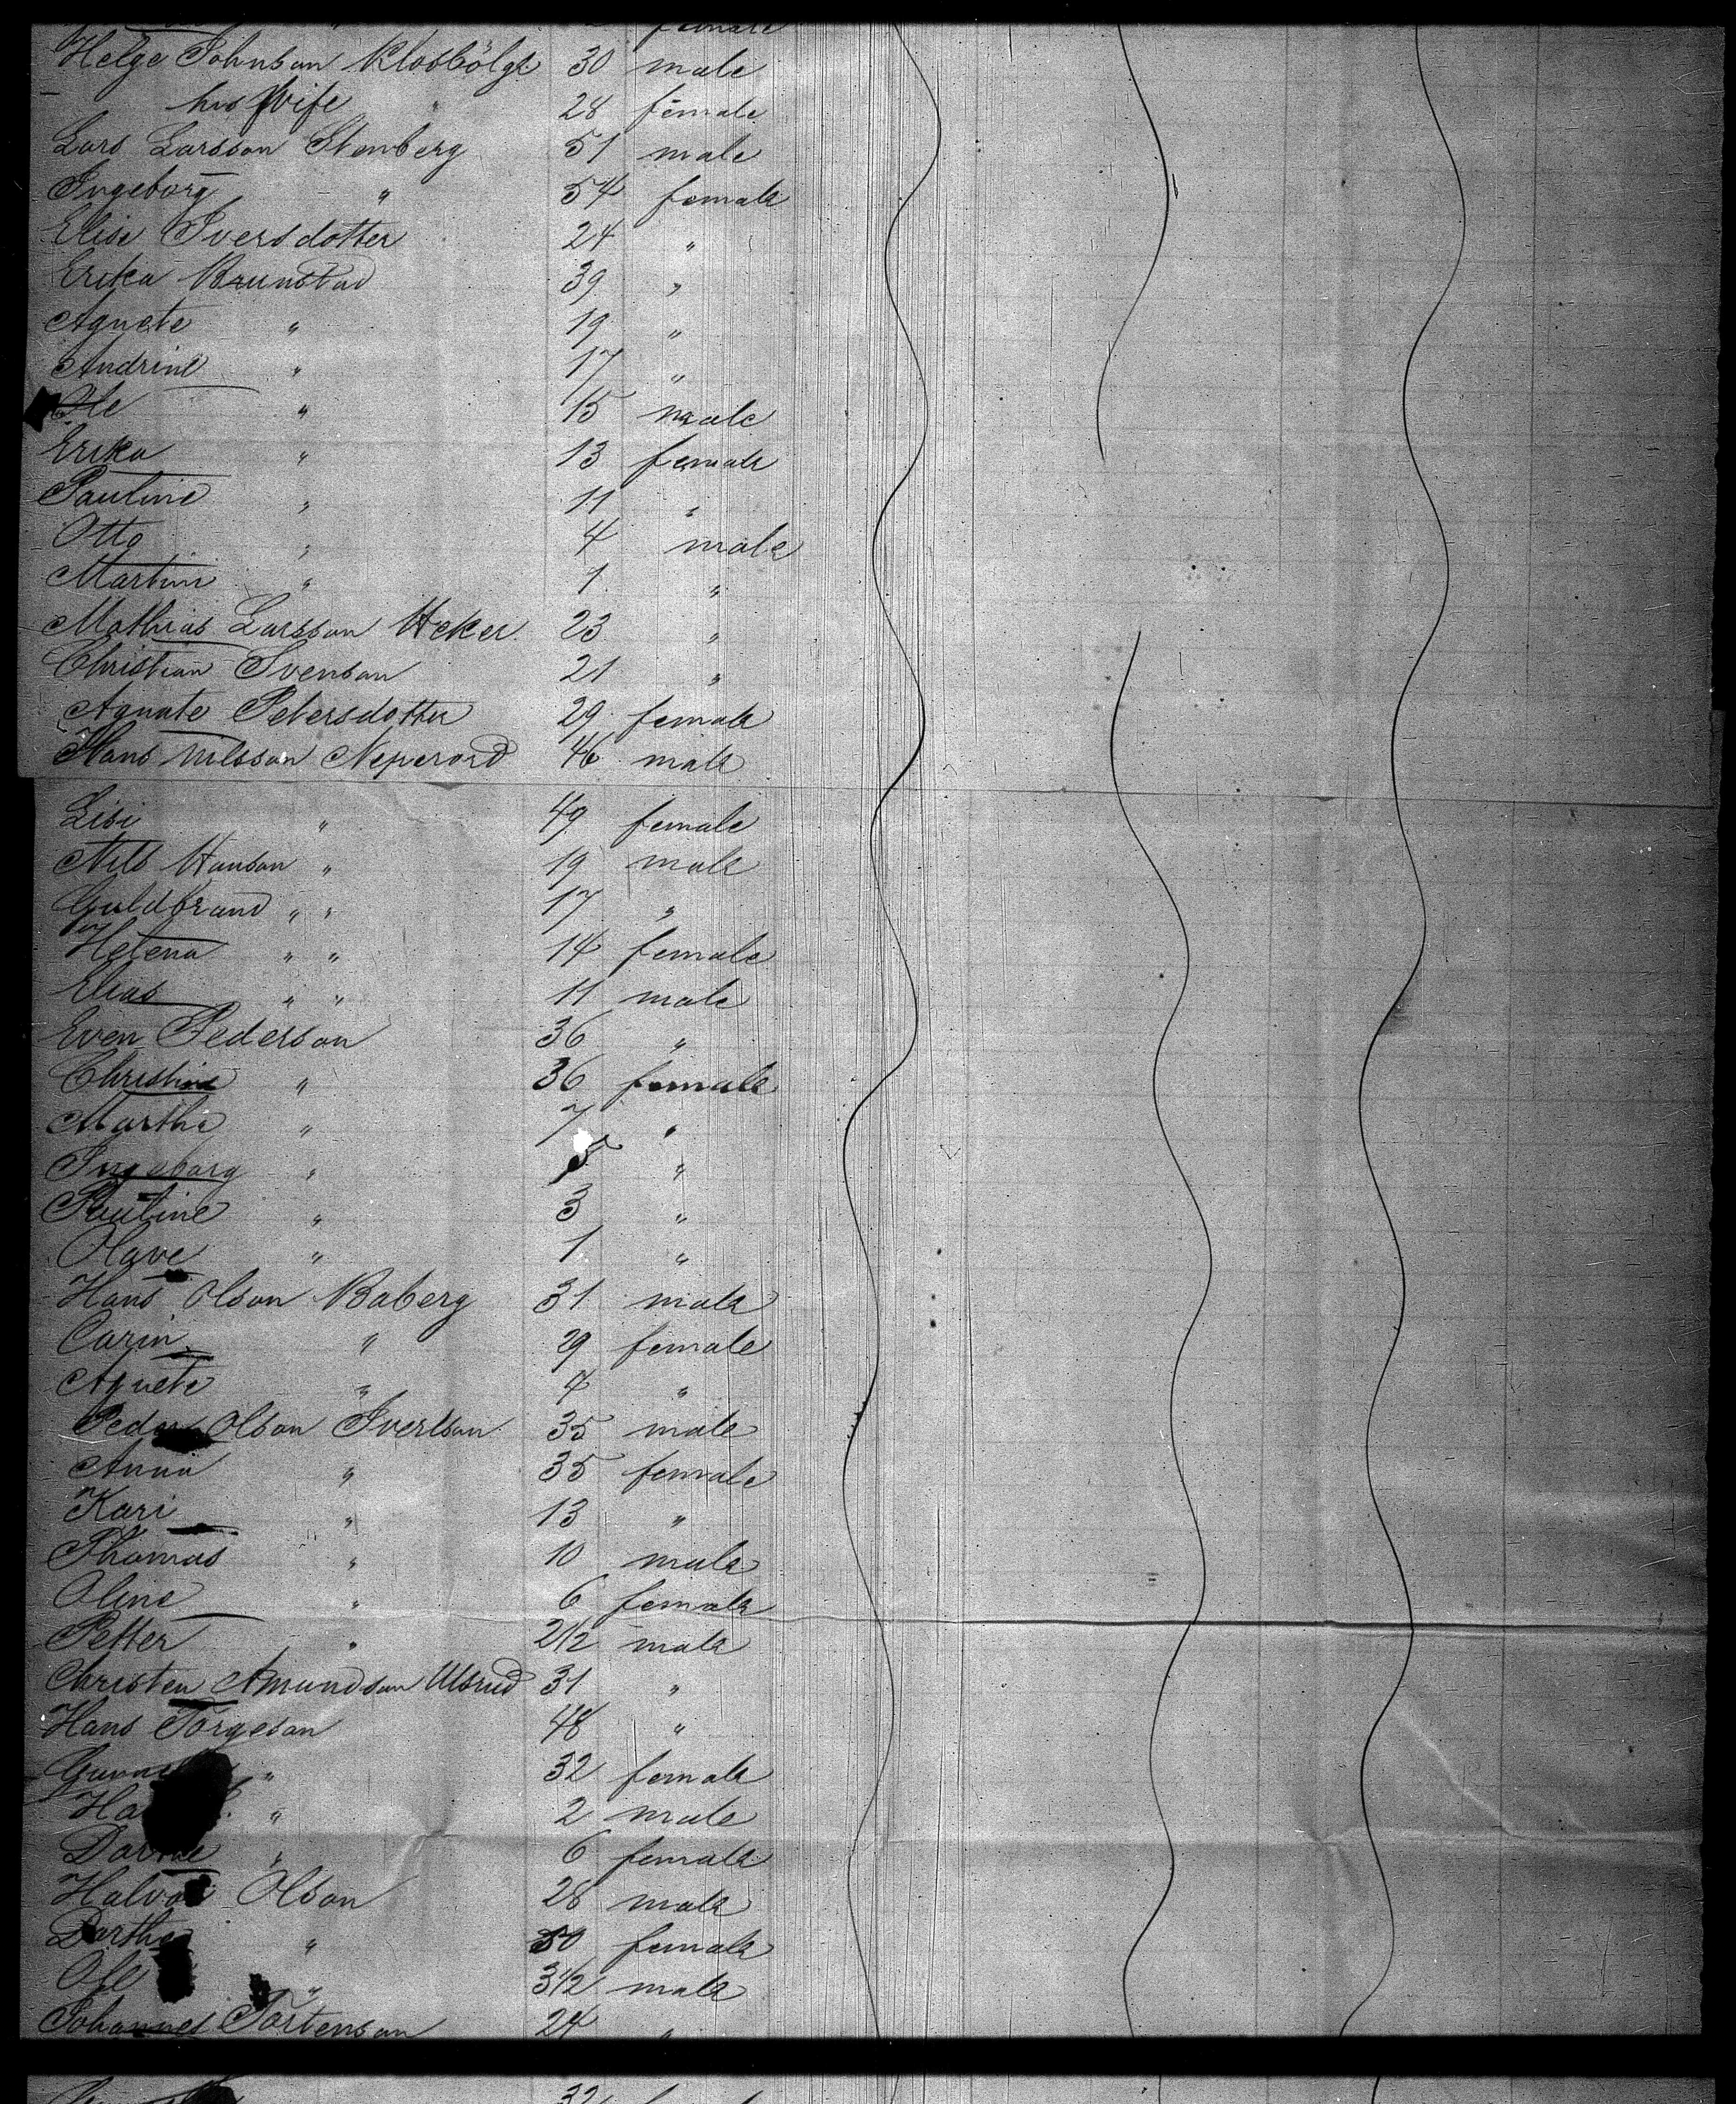 female
Helge Johnson Klosbölgt 30 male
his Wife " 28 female
Lars Larsson Stenberg 51 male
Ingeborg " 54 female
Elise Iversdotter 24 "
Erika Brunstad 39 "
Agnete " 19 "
Andrine " 17 "
Ole " 15 male
Erika " 13 female
Pauline " 11 "
Otto " 4 male
Martin " 1 "
Mathias Larsson Heker 23 "
Christian Svenson 21 "
Agnate Petersdotter 29 female
Hans Nilsson Neperord 46 male
Lisi " 49 female
Nils Hanson " 19 male
Guldbrand " " 17 "
Helena " " 14 female
Elias " " 11 male
Even Pederson 36 "
Christine " 36 female
Marthe " 7 "
Ingeborg " 5 "
Pauline " 3 "
Olave " 1 "
Hans Olson Baberg 31 male
Carin " 29 female
Agnete " 4 "
Peder Olson Iverson 35 male
Anna " 35 female
Kari " 13 "
Thomas " 10 male
Oline " 6 female
Petter " 2 1/2 male
Christen Amundson Ulsrud 31 "
Hans Torgeson 48 "
" 32 female
" 2 male
" 6 female
Halvor Olson 28 male
Dorthe " 30 female
Ole " 3 1/2 male
Johannes Tostenson 24 "
32